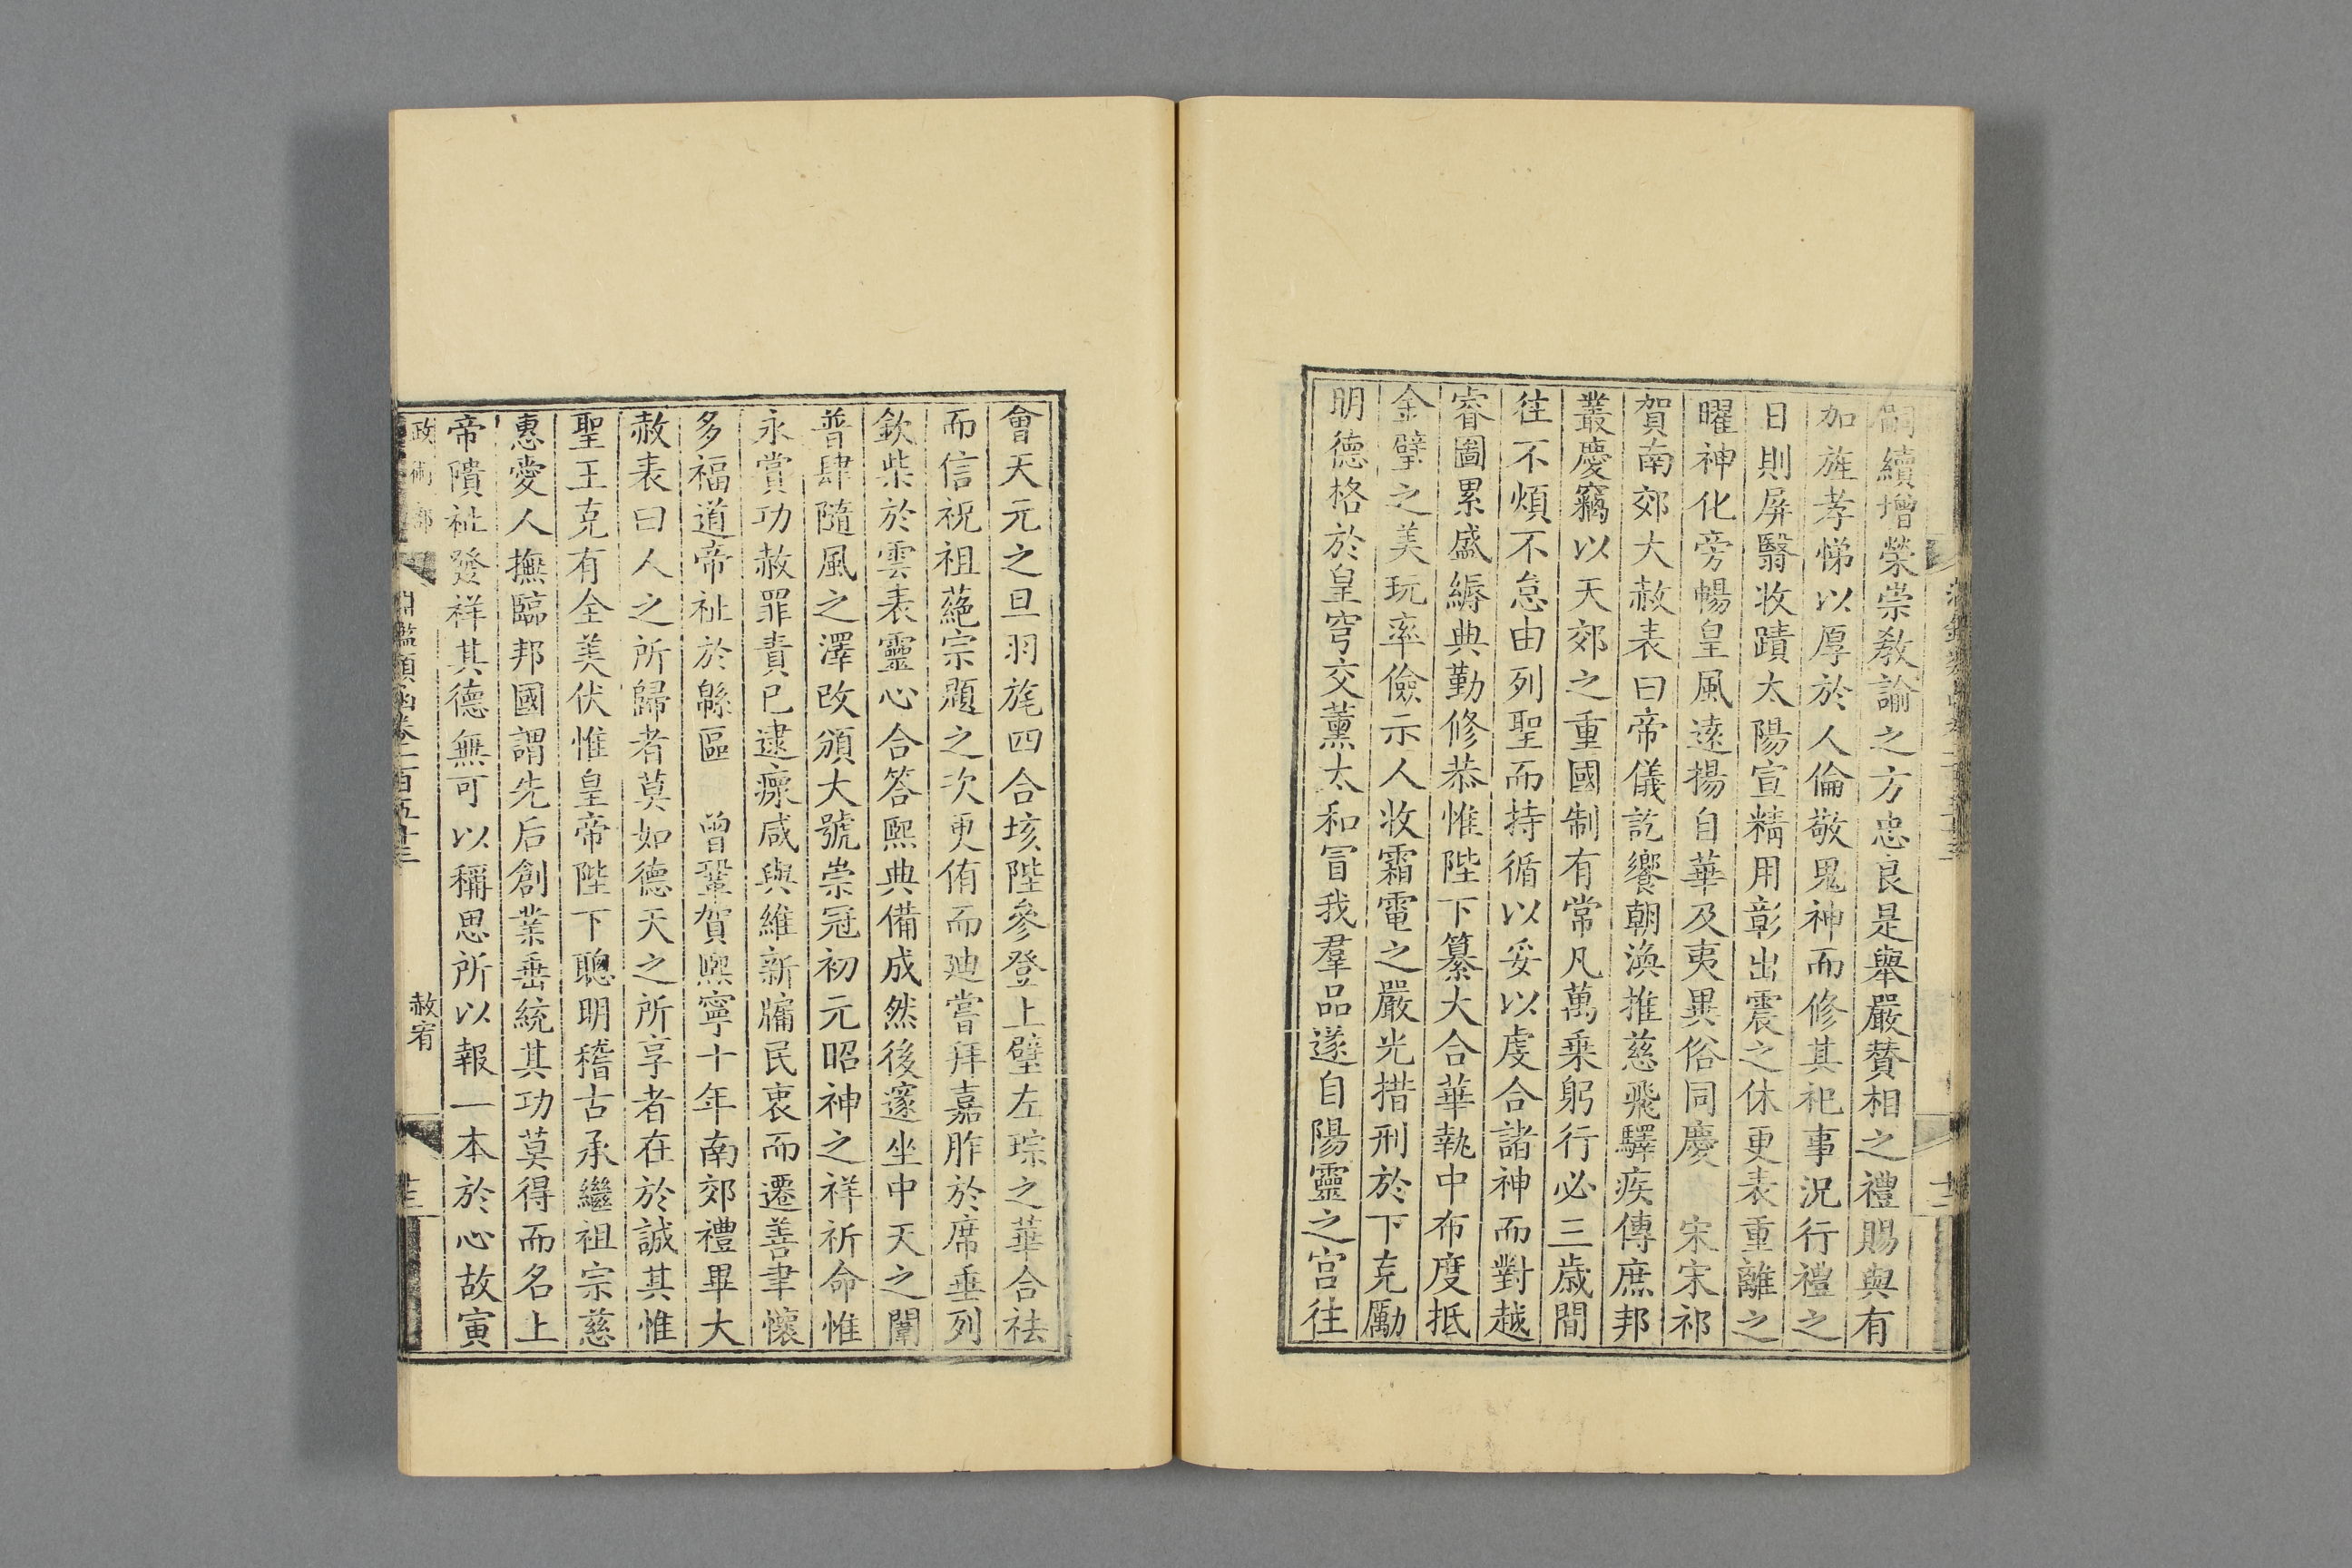 嗣續增榮崇敎諭之方忠良是舉嚴賛相之禮賜與有
加旌孝悌以厚於人倫敬鬼神而修其祀事况行禮之
日則屏翳收蹟太陽宣精用彰出震之休更表重離之
曜神化旁暢皇風遠揚自華及夷異俗同慶　宋宋祁
賀南郊大赦表曰帝儀訖饗朝渙推慈飛驛疾傳庶邦
叢慶竊以天郊之重國制有常凡萬乗躬行必三歳間
徃不煩不怠由列聖而持循以妥以虔合諸神而對越
睿圖累盛縟典勤修恭惟陛下纂大合華執中布度抵
金璧之美玩率儉示人收霜電之嚴光措刑於下克勵
明德格於皇穹交薰太和冒我羣品遂自陽靈之宫往
會天元之旦羽旄四合垓陛參登上璧左琮之華合祛
而信祝祖蕝宗題之次更侑而廸嘗拜嘉胙於席垂列
欽柴於雲表靈心合答熙典備成然後邃坐中天之闈
普肆隨風之澤改頒大號崇冠初元昭神之祥祈命惟
永賞功赦罪責已逮瘝咸與維新牖民衷而遷善聿懷
多福道帝祉於緜區　曾鞏賀熈寧十年南郊禮畢大
赦表曰人之所歸者莫如德天之所享者在於誠其惟
聖王克有全美伏惟皇帝陛下聰明稽古承繼祖宗慈
惠愛人撫臨邦國謂先后創業垂統其功莫得而名上
帝隤祉發祥其德無可以稱思所以報一本於心故寅
政術部　淵鑑類函卷二百五十三　赦宥　十三